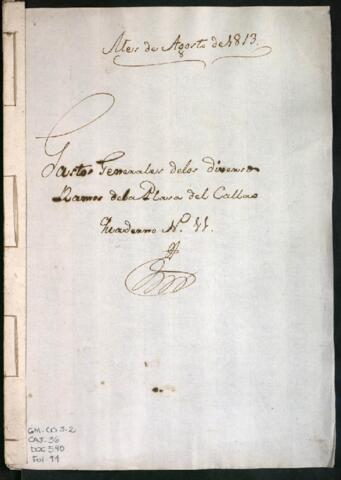 Mes de Agosto de 1813.
Gastos Generales delos diversos
Ramos dela Plasa del Callao
Quaderno N. 11.
GM. CO 3-2
CAJ. 36
DOC 590
FOL 11